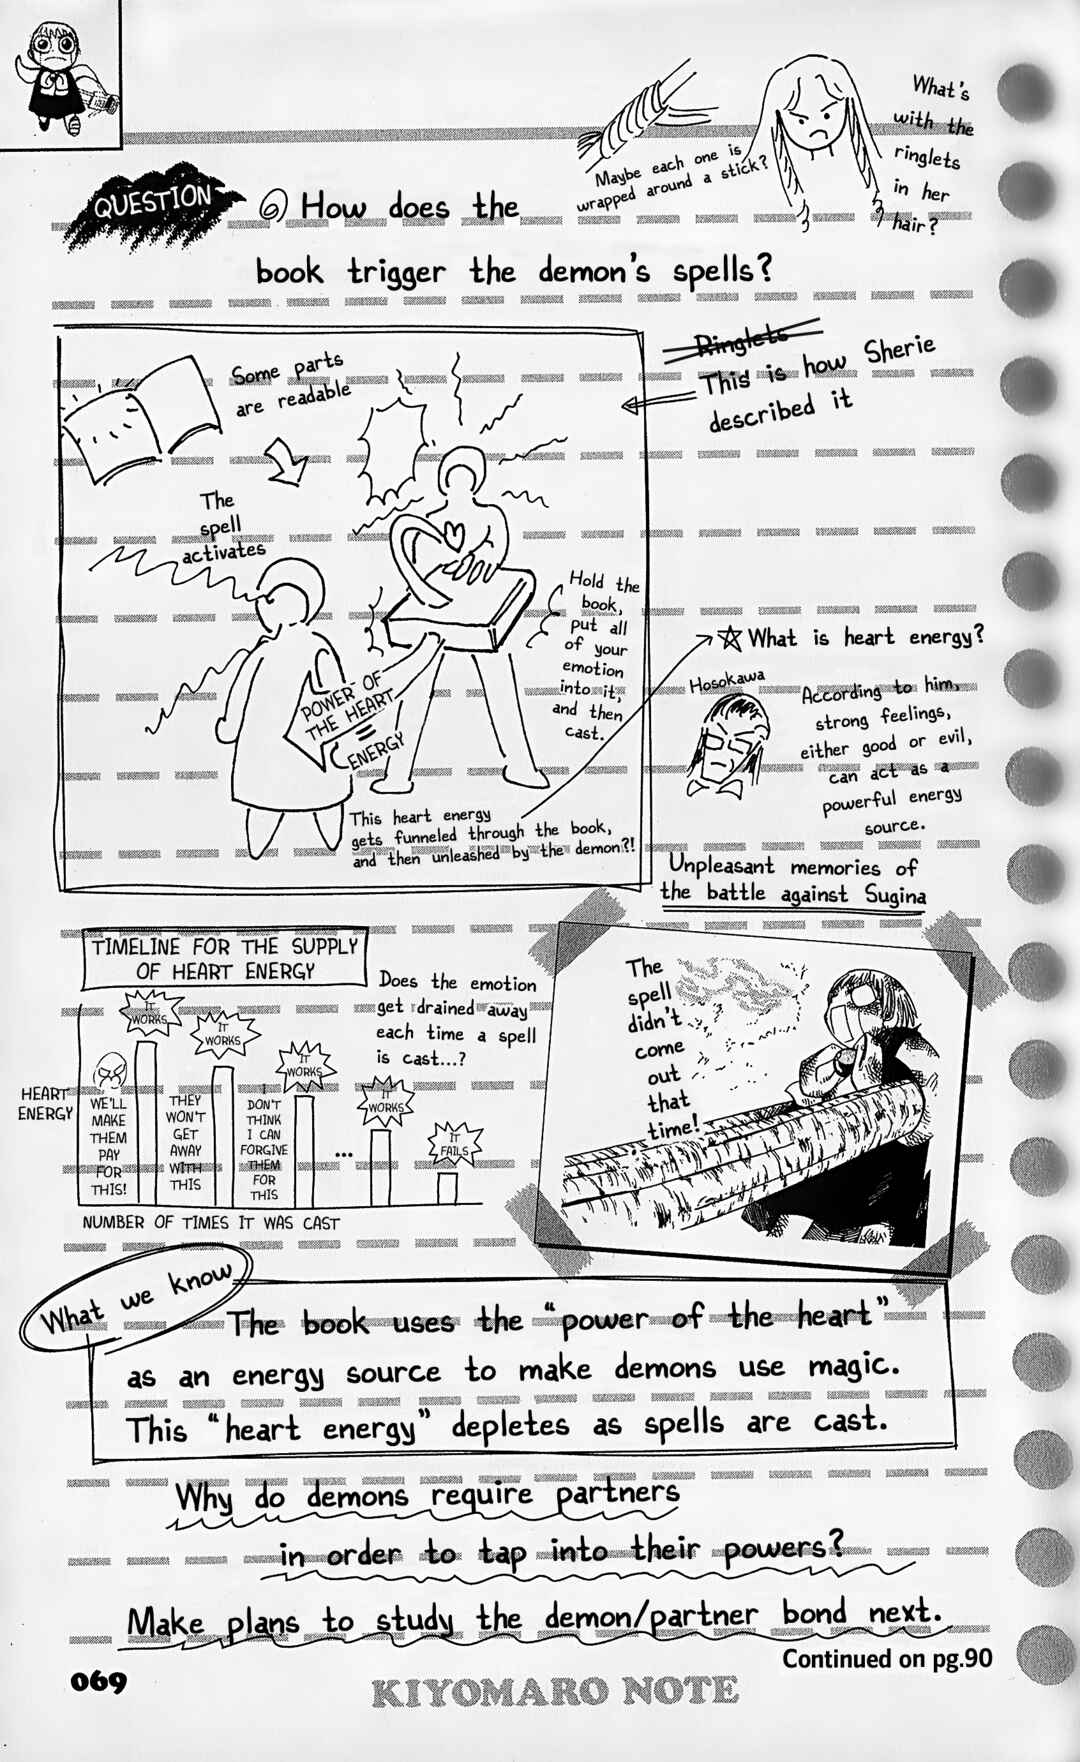 What's
with the
ringlets
in her
hair?
Maybe each one is
wrapped around a stick?
QUESTION
⑥ How does the
book trigger the demon's spells?
Ringlets
This is how Sherie
described it
Some parts
are readable
The
spell
activates
Hold the
book,
put all
of your
emotion
into it,
and then
cast.
POWER OF
THE HEART
=
ENERGY
This heart energy
gets funneled through the book,
and then unleashed by the demon?!
☆ What is heart energy?
Hosokawa
According to him,
strong feelings,
either good or evil,
can act as a
powerful energy
source.
Unpleasant memories of
the battle against Sugina
The
spell
didn't
come
out
that
time!
TIMELINE FOR THE SUPPLY
OF HEART ENERGY
Does the emotion
get drained away
each time a spell
is cast...?
HEART
ENERGY
WE'LL
MAKE
THEM
PAY
FOR
THIS!
IT
WORKS
THEY
WON'T
GET
AWAY
WITH
THIS
IT
WORKS
I
DON'T
THINK
I CAN
FORGIVE
THEM
FOR
THIS
IT
WORKS
...
IT
WORKS
IT
FAILS
NUMBER OF TIMES IT WAS CAST
What we know
The book uses the "power of the heart"
as an energy source to make demons use magic.
This "heart energy" depletes as spells are cast.
Why do demons require partners
in order to tap into their powers?
Make plans to study the demon/partner bond next.
Continued on pg.90
069
KIYOMARO NOTE